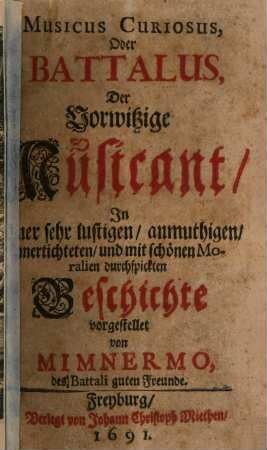 Musicus Curiosus,
Oder
BATTALUS,
Der
Vorwitzige
Musicant/
In
ner sehr lustigen/ anmuthigen/
nnertichteten/ und mit schönen Mo-
ralien durchspickten
Geschichte
vorgestellet
von
MIMNERMO,
des Battali guten Freunde.
Freyburg/
Verlegt von Johann Christoph Miethen/
1691.